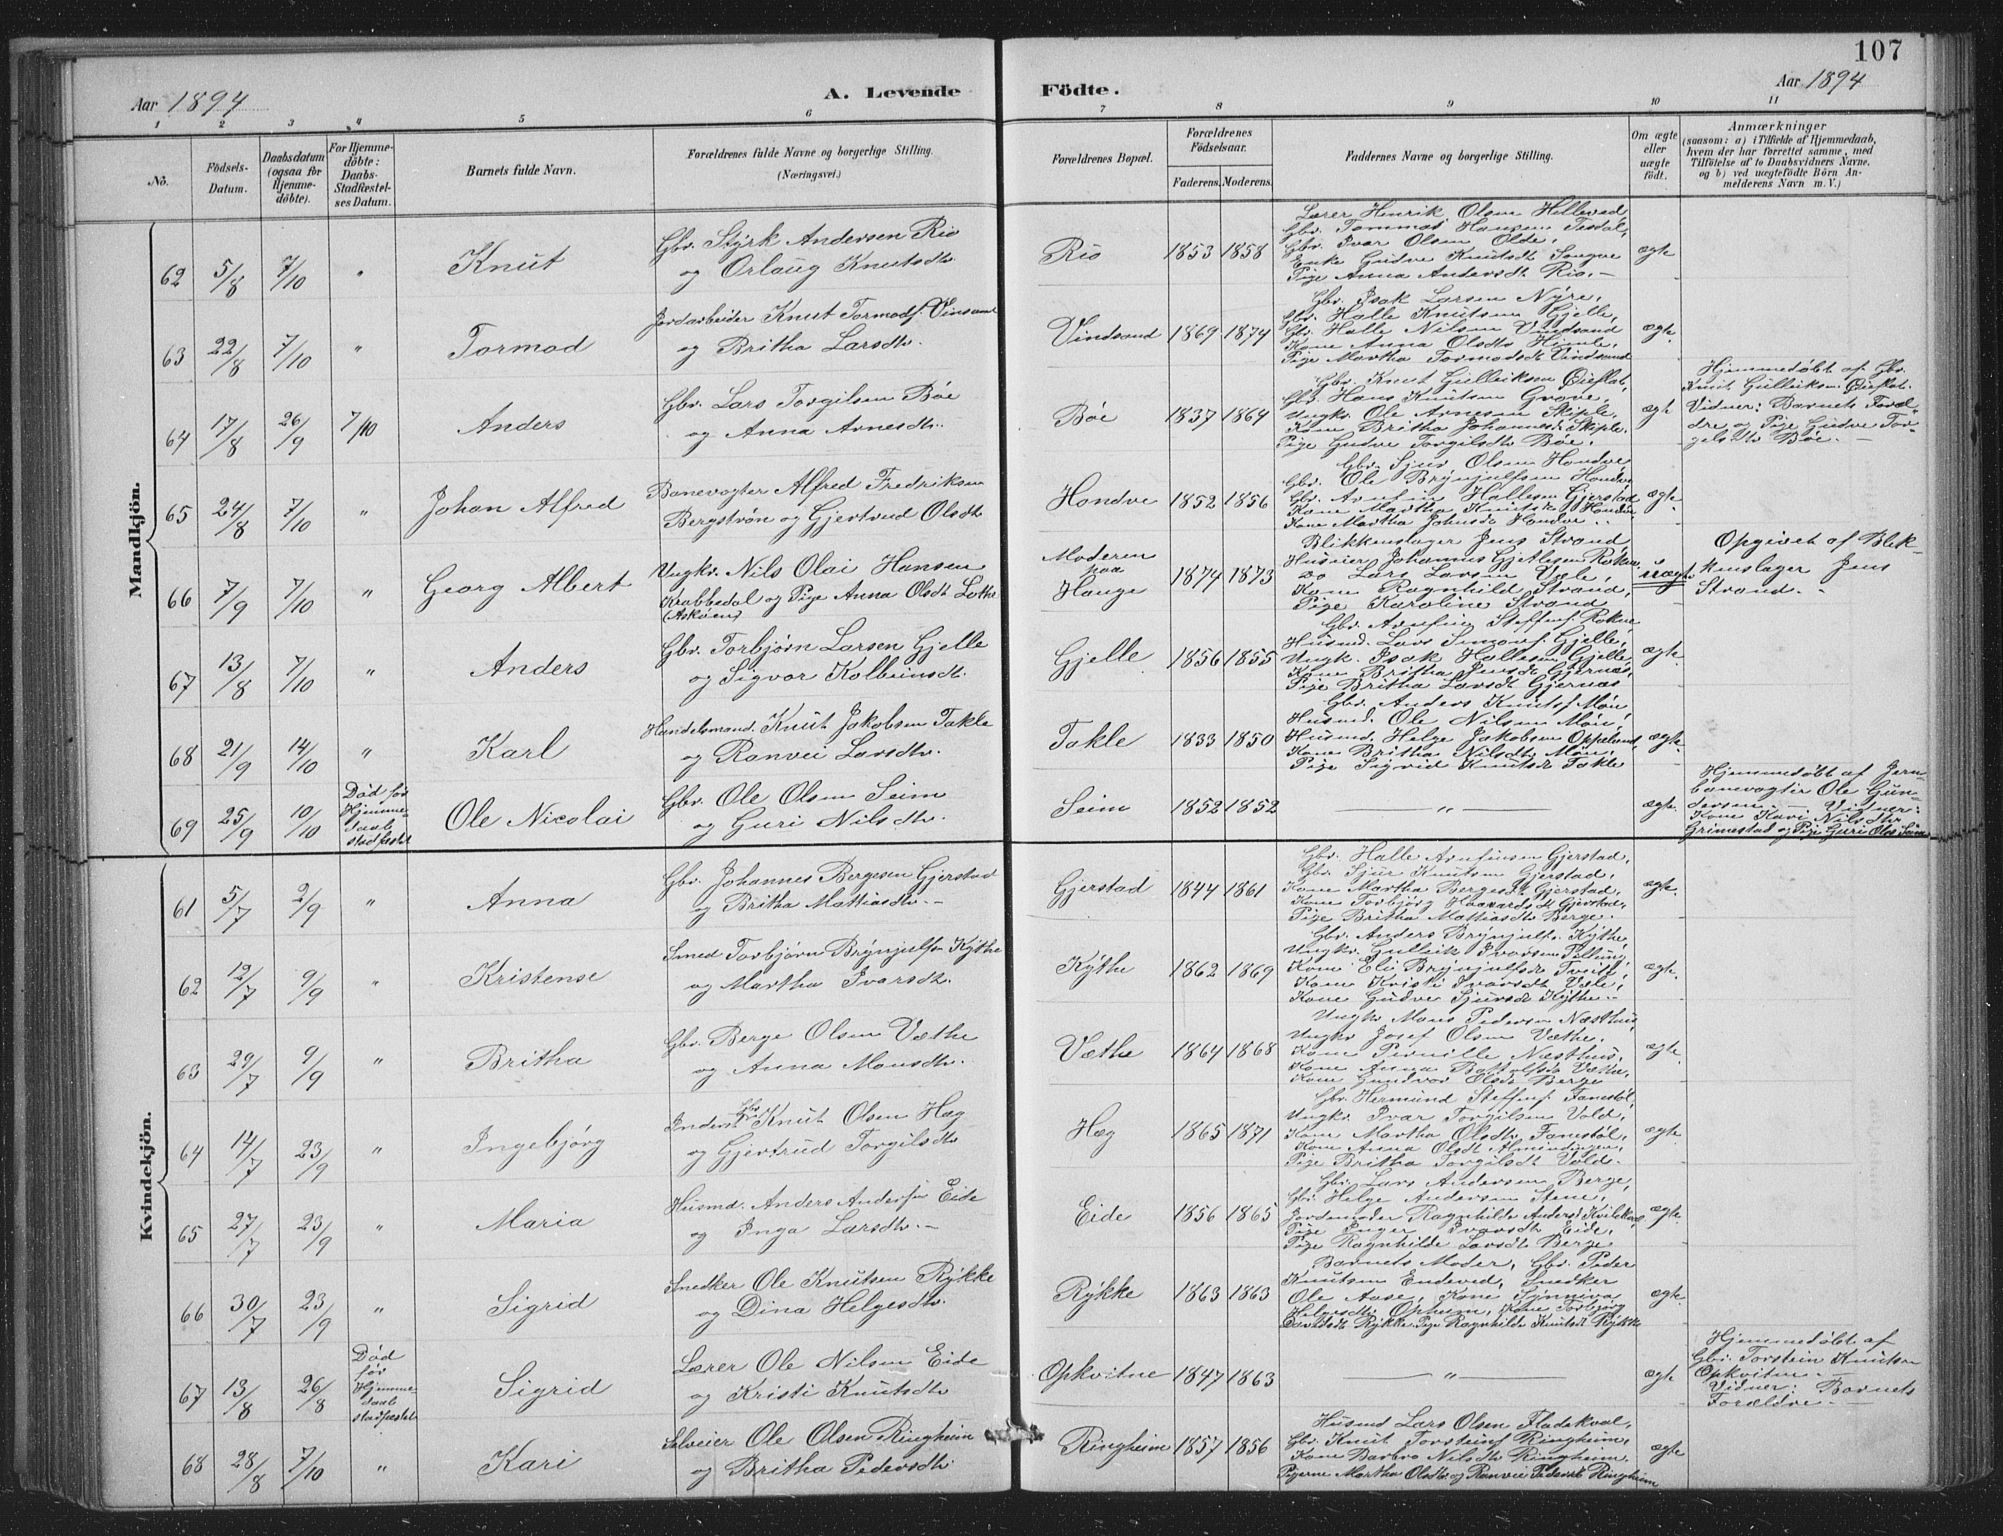 107
Aar 1894
A. Levende
Födte.
Aar 1894
1 2 3 4 5 6 7 8 9 10 11
No.
Födsels-Datum.
Daabsdatum (ogsaa for Hjemmedöbte).
For Hjemmedöbte: Daabs-Stadfæstelses Datum.
Barnets fulde Navn.
Forældrenes fulde Navne og borgerlige Stilling.
(Næringsvei.)
Forældrenes Bopæl.
Forældrenes Födselsaar.
Faderens. Moderens.
Faddernes Navne og borgerlige Stilling.
Om ægte eller uægte födt.
Anmærkninger
(saasom: a) i Tilfælde af Hjemmedaab, hvem der har forrettet samme, med Tilföielse af to Daabsvidners Navne, og b) ved uægtefödte Börn Anmelderens Navn m. V.)
Mandkjön.
62 5/8 7/10 " Knut
Gbr. Styrk Andersen Rio
og Orlaug Knutsdtr.
Rio 1853 1858
Lærer Henrik Olsen Hilleved,
Gbr. Tommas Hansen Tesdal,
Gbr. Ivar Olsen Olde,
Enke Gudve Knutsdt
Pige Anna Andersdt Rio.—
ægte
63 22/8 7/10 " Tormod
Jordarbeider Knut Tormodsf. Vinsand
og Britha Larsdtr.
Vindsand 1869 1874
Gbr. Isak Larsen Nyre,
Gbr. Halle Knutsen Gjelle,
Gbr. Halle Nilsen Vindsand
Kone Anna Olsdtr Himle,
Pige Martha Tormodsdt Vindsand
ægte
64 17/8 26/9 7/10 Anders
Gbr. Lars Torgilsen Böe
og Anna Arnesdtr.
Böe 1837 1864
Gbr. Knut Gulleiksen Eieflat,
Gbr. Hans Knutsen Grove,
Ungkr. Ole Arnesen Skiple,
Kone Britha Johannesd. Skiple,
Pige Gudve Torgilsdtr Böe.
ægte
Hjemmedöbt af Gbr.
Knut Gulleiksen Eieflat.
Vidner: Barnets Foræl-
dre og Pige Gudve Tor-
gilsdtr Böe.—
65 24/8 7/10 " Johan Alfred
Banevogter Alfred Fredriksen
Bergströn og Gjertrud Olsdt
Hondve 1852 1856
Gbr. Sjur Olsen Hondve,
Gbr. Ole Brynjulfsen Hondve
Gbr. Arnfin Hallesen Gjerstad,
Kone Martha Knutsd. Hondve,
Kone Martha Johnsd. Hondve.
ægte.
66 7/9 7/10 " Georg Albert
Ungkr. Nils Olai Hansen
Krabbedal og Pige Anna Olsdt Lothe
(Asköen)
Moderen
paa
Hauge 1874 1873
Blikkenslager Jens Strand
Huseier Johannes Gjetlesen Rokne,
do Lars Larsen Væle,
Kone Ragnhild Strand,
Pige Karoline Strand
uægte
Opgivet af Blik-
kenslager Jens
Strand.
67 13/8 7/10 " Anders
Gbr. Torbjörn Larsen Gjelle
og Sigvor Kolbeinsdt.
Gjelle 1856 1855
Gbr. Arnfin Steffensf. Rokne,
Husmd. Lars Simonsf. Gjelle,
Ungk. Isak Hallesen Gjelle,
Kone Britha Jensdt Gjernæs,
Pige Britha Larsdt Gjernæs
ægte.
68 21/9 14/10 " Karl
Handelsmand. Knut Jakobsen Takle
og Ranvei Larsdtr.
Takle 1833 1850
Gbr. Anders Knutsf. Mön,
Husmd. Ole Nilsen Mön,
Husmd. Helge Jakobsen Opplund,
Kone Britha Nilsdtr Mön,
Pige Sigrid Knutsdt Takle
ægte.
69 25/9 10/10 Död för Hjemme-daab stadfæstet
Ole Nicolai
Gbr. Ole Olsen Seim
og Guri Nilsdtr.
Seim 1852 1852
— " —
ægte.
Hjemmedöbt af Jern-
banevogter Ole Gun-
dersen.— Vidner:
Kone Kari Nilsdtr
Grimestad og Pige Guri Olsd. Seim
Kvindekjön.
61 5/7 2/9 " Anna
Gbr. Johannes Bergesen Gjerstad
og Britha Mattiasdtr.—
Gjerstad 1844 1861
Gbr. Halle Arnfinsen Gjerstad,
Gbr. Sjur Knutsen Gjerstad,
Kone Martha Bergesdt Gjerstad,
Kone Torbjörg Haavardsdt Gjerstad,
Pige Britha Mattiasdtr Berge.
ægte.
62 12/7 9/9 " Kristense
Smed Torbjörn Brynjulfsen Kythe
og Martha Ivarsdtr.
Kythe 1862 1869
Gbr. Anders Brynjulfs. Kythe,
Ungkr. Gulleik Ivarsen
Kone Eli Brynjulfsdt Tveite,
Kone Kristi Ivarsdt Væle,
Kone Gudve Sjursdt Kythe.—
ægte.
63 29/7 9/9 " Britha
Gbr. Berge Olsen Væthe
og Anna Monsdtr.
Væthe 1864 1868
Ungkr Mons Pedersen Næsthus,
Ungkr Josef Olsen Væthe,
Kone Pernille Næsthus,
Kone Anna Væthe,
Kone Gundvor Olsdt Berge
ægte.
64 14/7 23/9 " Ingebjörg
Inderst Gbr. Knut Olsen Hæg
og Gjertrud Torgilsdtr
Hæg 1865 1871
Gbr. Hermund Steffensf. Fanestöl,
Ungkr. Ivar Torgilsen Vold,
Kone Martha Olsdtr Fanestöl,
Kone Anna Olsdt Almindingen,
Pige Britha Torgilsdt Vold.
ægte.
65 27/7 23/9 " Maria
Husmd. Anders Andersen Eide
og Inga Larsdtr.—
Eide 1856 1865
Gbr. Lars Andersen Berge,
Gbr. Helge Andersen Stene,
Jordemoder Ragnhilde Andersd
Pige Inger Ivarsdt Eide,
Pige Ragnhilde Larsdt Berge
ægte.
66 30/7 23/9 " Sigrid
Snedker Ole Knutsen Rykke
og Dina Helgesdtr.
Rykke 1863 1863
Barnets Moder, Gbr. Peder
Knutsen Endeved, Snedker
Ole Aase, Kone Synneva
Helgesdtr Opheim, Kone Torbjörg
Eirilsdt Rykke, Pige Ragnhilde Knutsdt Rykke
ægte.
67 13/8 26/8 Död för Hjemme-daab stadfæstet
Sigrid
Lærer Ole Nilsen Eide
og Kristi Knutsdtr
Opkvitne 1847 1863
— " —
ægte
Hjemmedöbt af
Gbr. Torstein Knutsen
Opkvitne.—
Vidner: Barnets
Forældre.—
68 28/8 7/10 " Kari
Selveier Ole Olsen Ringheim
og Britha Pedersdtr.
Ringheim 1857 1856
Husmd Lars Olsen Fladekval,
Gbr. Knut Torsteinsf Ringheim,
Kone Barbro Nilsdtr Ringheim,
Pigerne Martha Olsdtr og Ranvei Pedersdt Ringheim
ægte